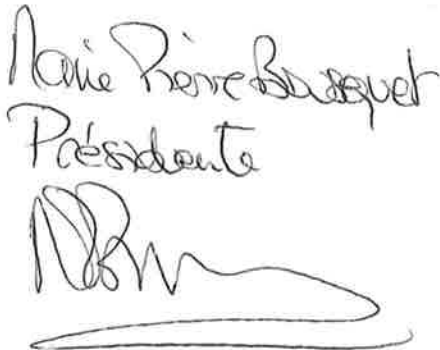 Marie Pierre Bousquet
Présidente